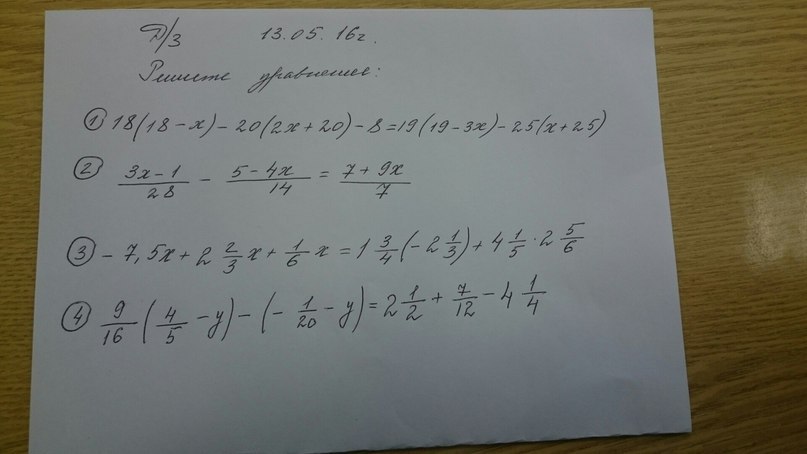 Д/З 13.05.16г.
Решите уравнение:
① 18(18-x)-20(2x+20)-8=19(19-3x)-25(x+25)
② (3x-1)/28 - (5-4x)/14 = (7+9x)/7
③ -7,5x+2 2/3 x+ 1/6 x=1 3/4 (-2 1/3)+4 1/5 · 2 5/6
④ 9/16 (4/5 -y)-(- 1/20 -y)=2 1/2 + 7/12 -4 1/4